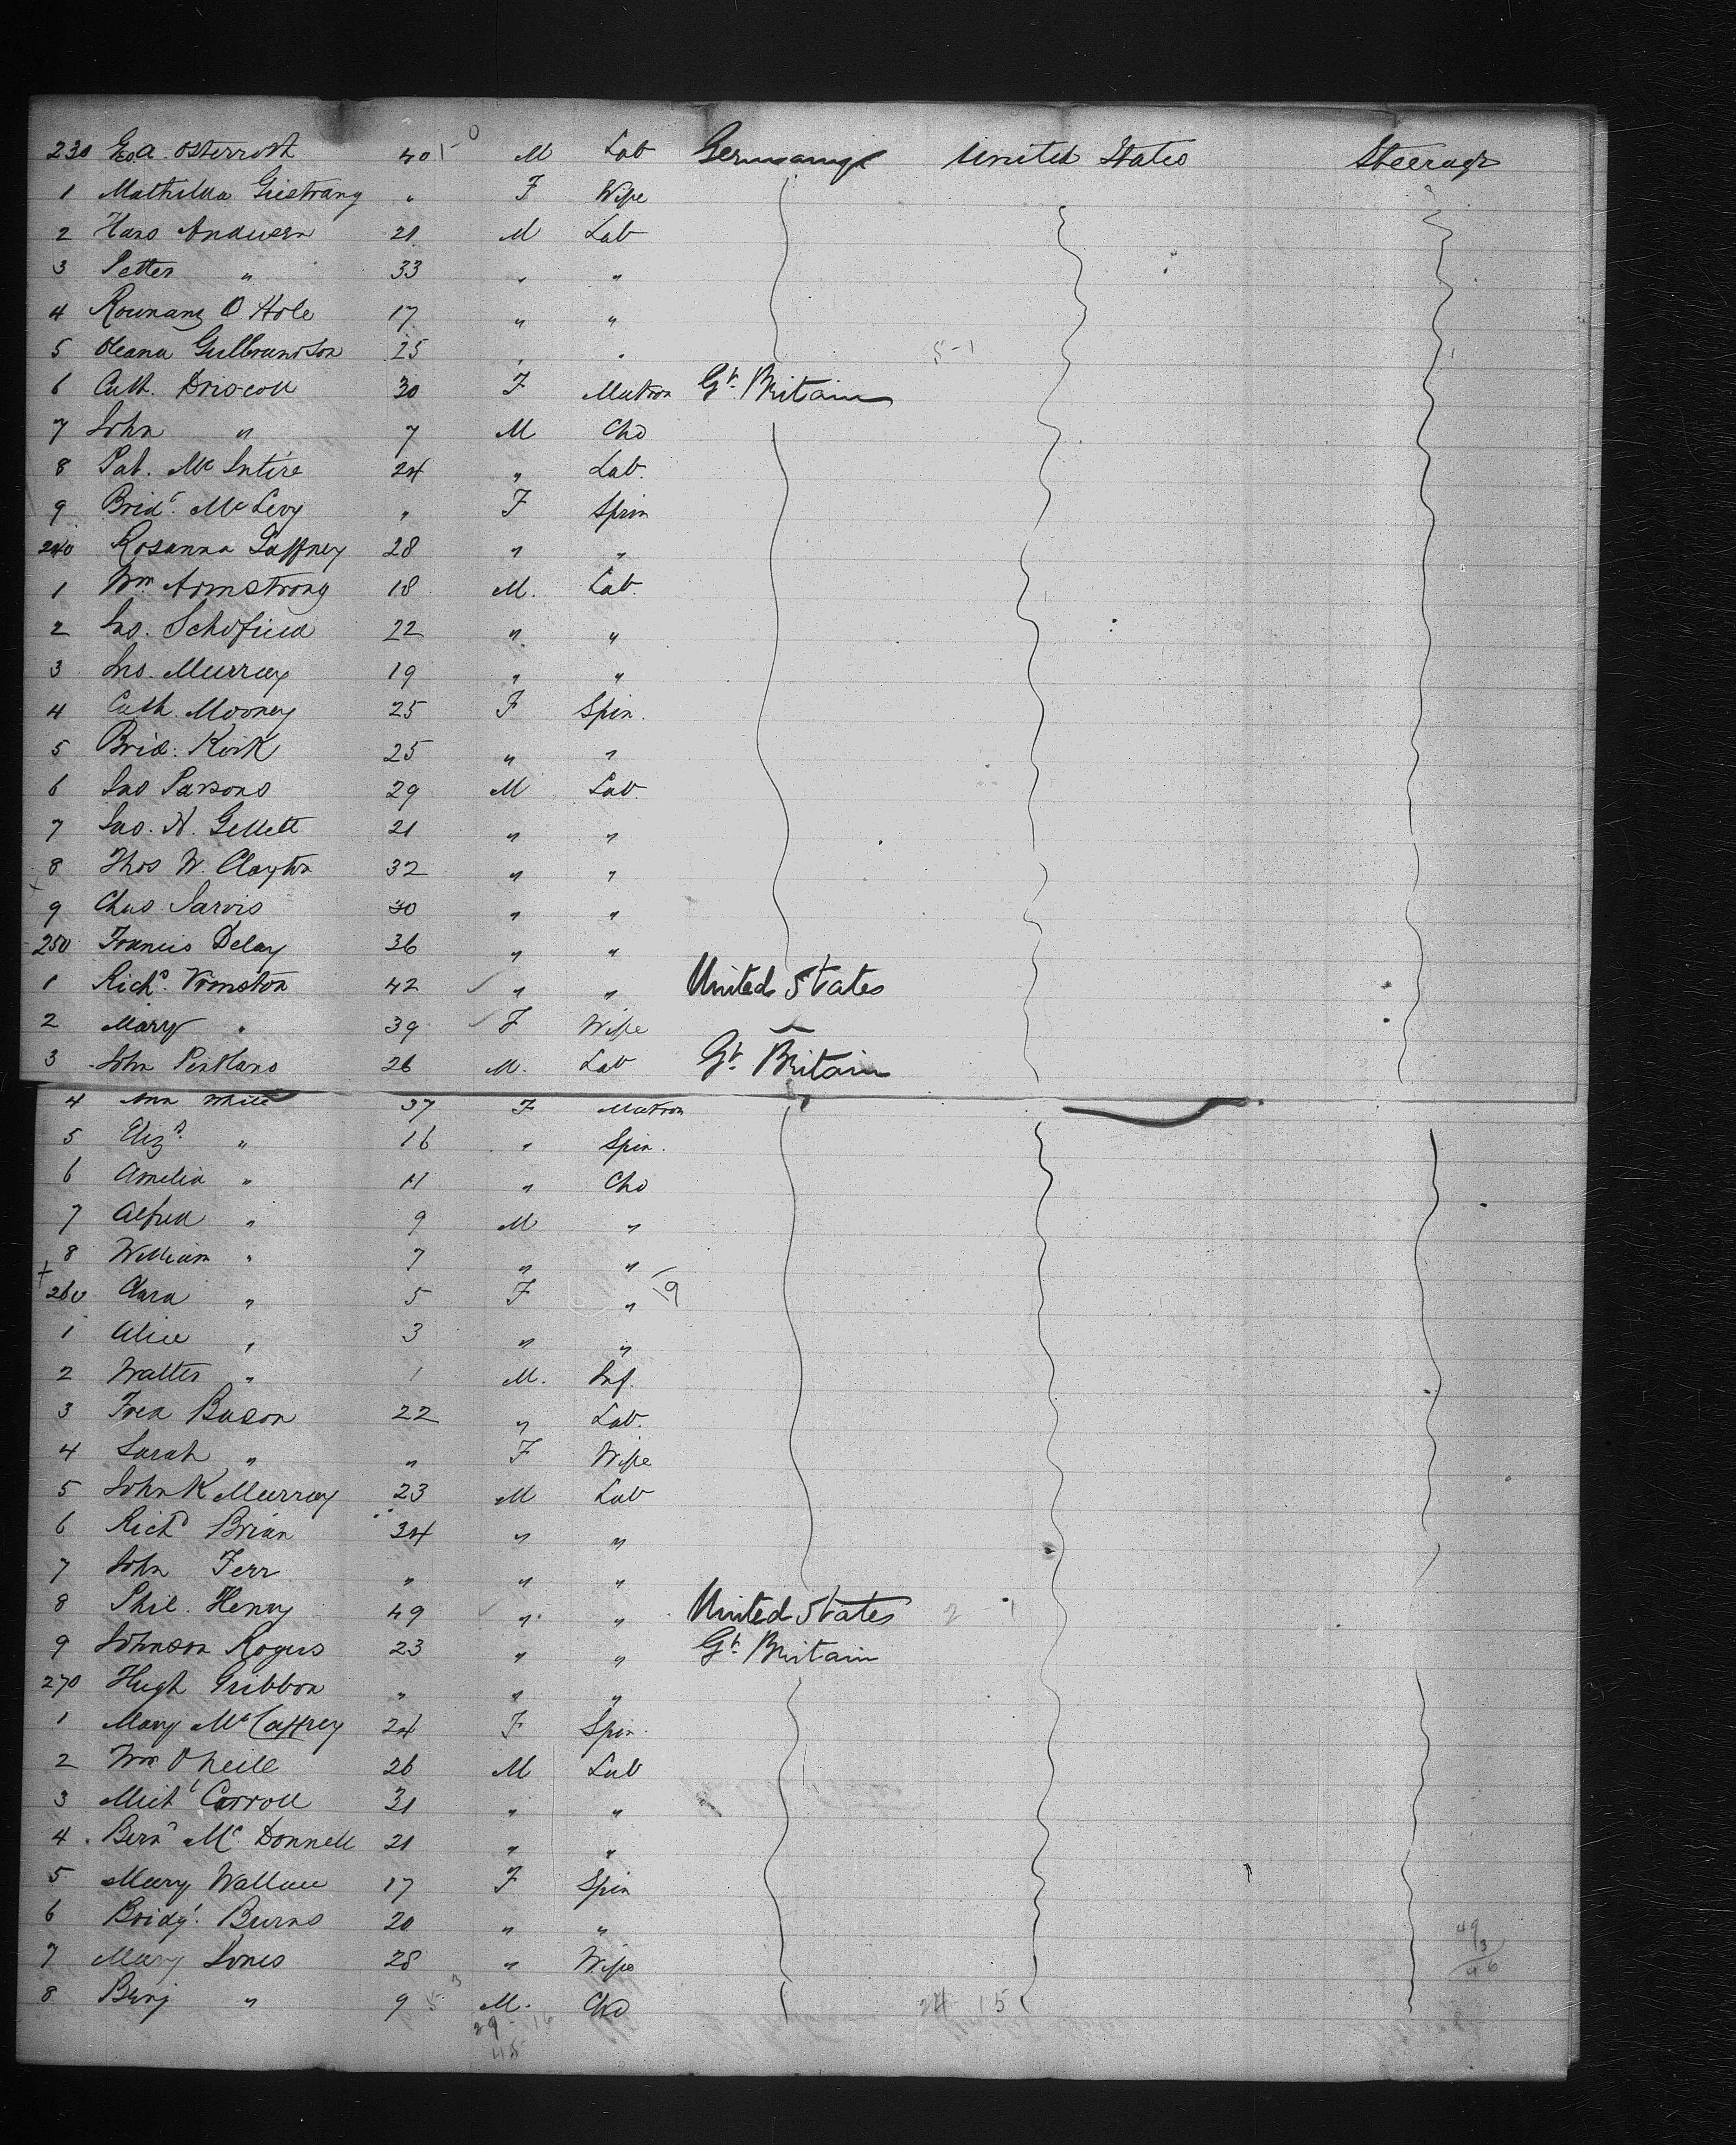 230 Geo. A. Osterroth 40 M Lab Germany United States Steerage
1 Mathilda Giestrang " F Wife
2 Hans Andersen 21 M Lab
3 Petter " 33 " "
4 O Hole 17 " "
5 Oleana Gulbrandson 25 " " 5-1
6 Cath. Driscoll 30 F Matron Gt. Britain
7 John " 7 M Chd
8 Pat. McIntire 24 " Lab.
9 Bridt. McLevy " F Spin
240 Rosanna Gaffney 28 " "
1 Wm. Armstrong 18 M. Lab.
2 Jno. Schofield 22 " "
3 Jno. Murray 19 " "
4 Cath. Mooney 25 F Spin.
5 Brid. Kirk 25 " "
6 Jno Parsons 29 M Lab.
7 Jno. H. Gellett 21 " "
8 Thos W. Clayton 32 " "
9 Chas Jarvis 30 " "
250 Francis Delay 36 " "
1 Richd. 42 " " United States
2 Mary " 39 F Wife
3 John Pentland 26 M. Lab Gt. Britain
4 Ann White 37 F Matron
5 Eliz. " 16 " Spin.
6 Amelia " 11 " Chd
7 Alfred " 9 M "
8 William " 7 " "
260 Clara " 5 F " 19
1 Alice " 3 " "
2 Walter " 1 M. Inf.
3 Fred Bacon 22 " Lab.
4 Sarah " " F Wife
5 John K Murray 23 M Lab
6 Richd Brian 34 " "
7 John Ferr " " "
8 Phil. Henry 49 " " United States 2-1
9 Johnson Rogers 23 " " Gt. Britain
270 Hugh Gribbon " " "
1 Mary McCaffrey 24 F Spin.
2 Wm O'Neill 26 M Lab
3 Michl Carroll 31 " "
4 Bernd McDonnell 21 " "
5 Mary Wallace 17 F Spin
6 Bridgt. Burns 20 " "
7 Mary Jones 28 " Wife
8 Benj " 9 M. Chd 24 15
29-16
45